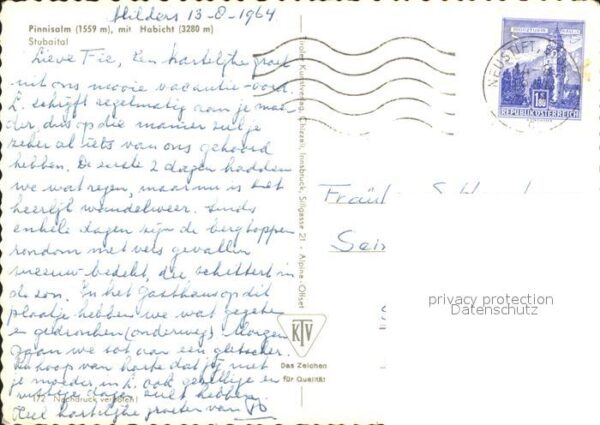 Milders 13-8-1964
Pinnisalm (1559 m), mit Habicht (3280 m)
Stubaital
Lieve Fie, Een hartelijke groet
uit ons mooie vacantie-oord.
L. schrijft regelmatig aan je moe
der, dus op die manier zul je
zeker al iets van ons gehoord
hebben. De eerste 2 dagen hadden
we wat regen, maar nu is het
heerlijk wandelweer. Sinds
enkele dagen zijn de bergtoppen
rondom met vers gevallen
sneeuw bedekt, die schittert in
de zon. In het Gasthaus op dit
plaatje hebben we wat gegeten
en gedronken (onderweg). Morgen
gaan we tot aan een gletscher.
hoop van harte dat jij met
je moeder in ook gezellige en
rustige dagen zult hebben.
172 Nachdruck verboten!
Veel hartelijke groeten van
Tiroler Kunstverlag Chizzali, Innsbruck, Sillgasse 21 · Alpine-Offset
KTV
Das Zeichen
für Qualität
NEUSTIFT
1.80
REPUBLIK ÖSTERREICH
Fräul
privacy protection
Datenschutz